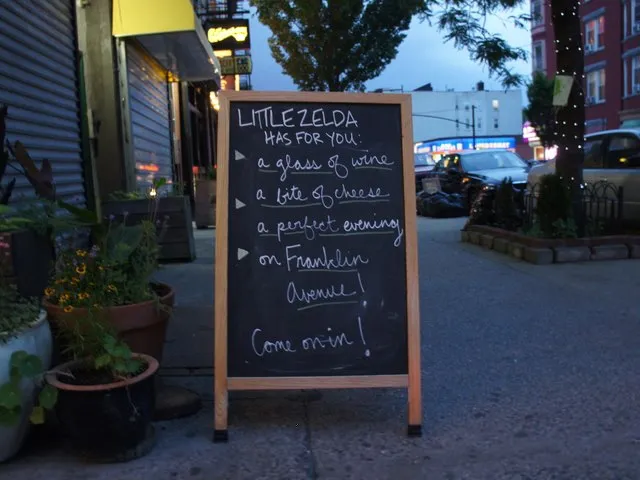 LITTLE ZELDA
HAS FOR YOU:
a glass of wine
a bite of cheese
a perfect evening
on Franklin
Avenue!
Come on in!